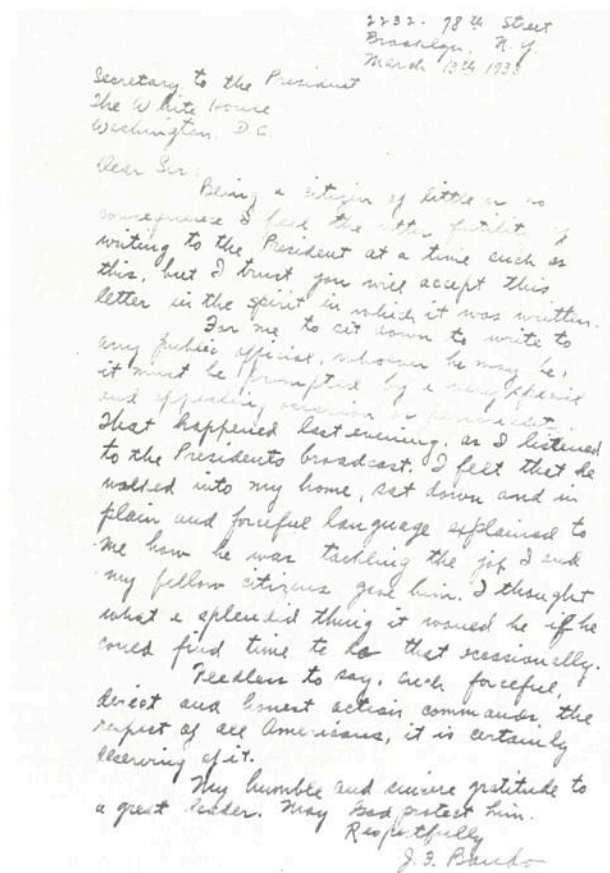 2232 - 78th Street
Brooklyn, N.Y.
March 13th 1933
Secretary to the President
The White House
Washington. D.C.
Dear Sir:
Being a citizen of little or no
consequence I feel the utter futility of
writing to the President at a time such as
this, but I trust you will accept this
letter in the spirit in which it was written.
For me to sit down to write to
any public official, whoever he may be,
it must be prompted by a very special
and appealing occasion or
That happened last evening, as I listened
to the Presidents broadcast. I felt that he
walked into my home, sat down and in
plain and forceful language explained to
me how he was tackling the job I and
my fellow citizens gave him. I thought
what a splendid thing it would be if he
could find time to do that occasionally.
Needless to say, such forceful,
direct and honest action commands the
respect of all Americans, it is certainly
deserving of it.
My humble and sincere gratitude to
a great leader. May God protect him.
Respectfully